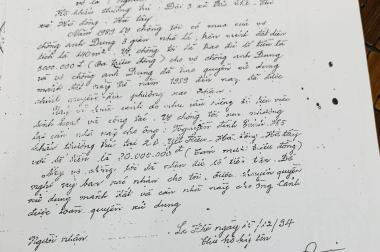 Hộ khẩu thường trú: Đội 3 xã
xã Hà đông - Hà Tây
Năm 1989 vợ chồng tôi có mua của vợ
chồng anh Dung 3 gian nhà
tích là 110 m². Vợ chồng tôi đã trao đủ số tiền là
3.000.000đ (Ba triệu đồng) cho vợ chồng anh Dung
và vợ chồng anh Dung đã trao quyền sử dụng
mảnh đất này từ năm 1989 đến nay tôi
chính quyền địa phương xác nhận.
Nay vì hoàn cảnh do nhu cầu riêng đi tiện việc
sinh hoạt và công tác. Vợ chồng tôi sang nhượng
lại căn nhà này cho ông: Nguyễn Đình Cảnh
khẩu thường trú tại 20 Yết Kiêu - Hà đông - Hà tây
với số tiền là 20.000.000đ (Hai mươi triệu đồng)
Nay vợ chồng tôi đã nhận đủ số tiền trên. Đề
nghị uỷ ban xác nhận cho tôi, được chuyển quyền
sử dụng mảnh đất và căn nhà này cho ông Cảnh
được toàn quyền sử dụng
La Khê ngày 15/12/94
Người nhận
Chủ hộ ký tên